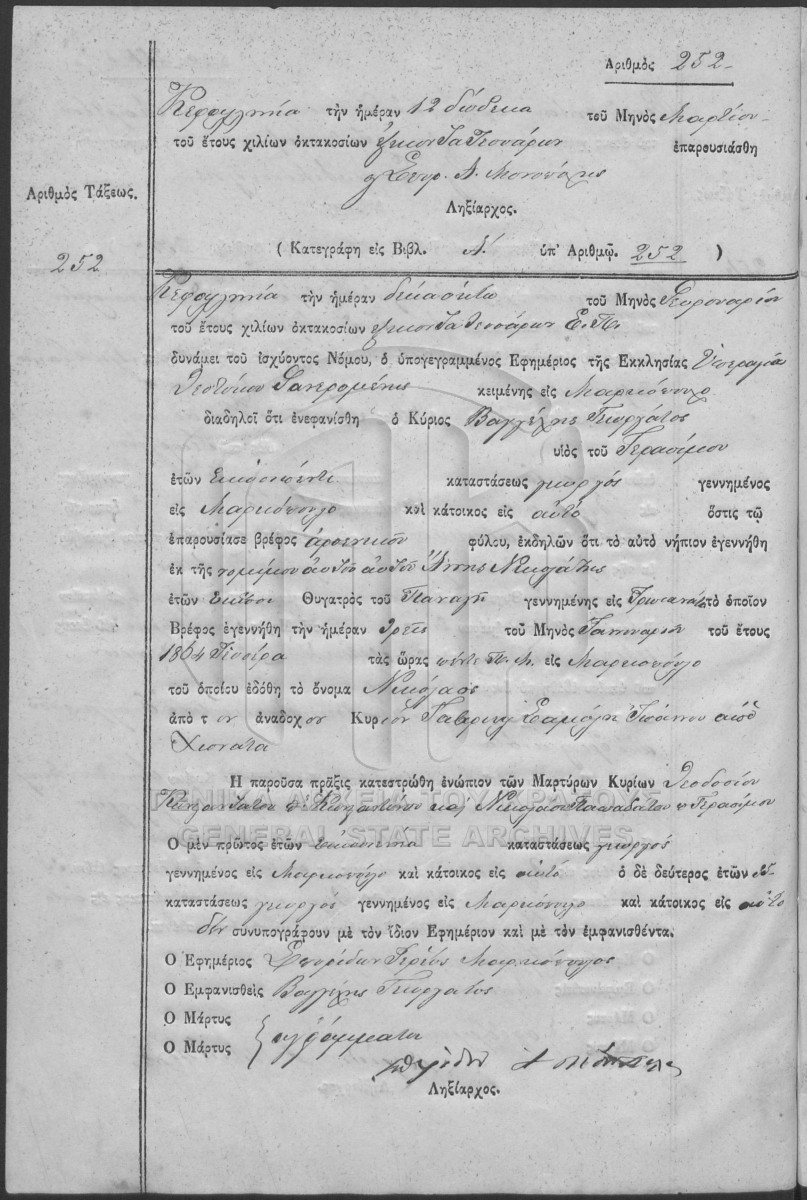 Ἀριθμὸς 252
Κεφαλληνία τὴν ἡμέραν 12 δώδεκα τοῦ Μηνὸς Μαρτίου
τοῦ ἔτους χιλίων ὀκτακοσίων ἑξηκοντατεσσάρων ἐπαρουσιάσθη
ὁ Σπυρ. Α.
Ληξίαρχος.
Ἀριθμὸς Τάξεως.
252
( Κατεγράφη εἰς Βιβλ. Α. ὑπ' Ἀριθμῷ. 252 )
Κεφαλληνία τὴν ἡμέραν δεκαοκτώ τοῦ Μηνὸς Φευρουαρίου
τοῦ ἔτους χιλίων ὀκτακοσίων ἑξηκοντατεσσάρων Ε. Π.
δυνάμει τοῦ ἰσχύοντος Νόμου, ὁ ὑπογεγραμμένος Ἐφημέριος τῆς Ἐκκλησίας Ὑπεραγία
Θεοτόκου Φανερομένης κειμένης εἰς Μαρκόπουλο
διαδηλοῖ ὅτι ἐνεφανίσθη ὁ Κύριος Βαγγέλης Γεωργάτος
υἱὸς τοῦ Γερασίμου
ἐτῶν εικοσιπέντε καταστάσεως γεωργός γεννημένος
εἰς Μαρκόπουλο καὶ κάτοικος εἰς αὐτό ὅστις τῷ
ἐπαρουσίασε βρέφος ἀρσενικοῦ φύλου, ἐκδηλῶν ὅτι τὸ αὐτὸ νήπιον ἐγεννήθη
ἐκ τῆς νομίμου αὐτοῦ Ἄννης
ἐτῶν εἴκοσι Θυγατρὸς τοῦ Παναγῆ γεννημένης εἰς τὸ ὁποῖον
Βρέφος ἐγεννήθη τὴν ἡμέραν τρεῖς τοῦ Μηνὸς Ἰανουαρίου τοῦ ἔτους
1864 τὰς ὥρας πέντε Π. Μ. εἰς Μαρκόπουλο
τοῦ ὁποίου ἐδόθη τὸ ὄνομα Νικόλαος
ἀπὸ τ ον ἀναδοχ ον Κυρι ον Γαβριήλ Σαμόλη Ἰωάννου ἀπὸ
Χιονάτα
Ἡ παροῦσα πρᾶξις κατεστρώθη ἐνώπιον τῶν Μαρτύρων Κυρίων Θεοδοσίου
καὶ Νικολάου Παπαδάτου Γερασίμου
ΓΕΝΙΚΑ ΑΡΧΕΙΑ ΤΟΥ ΚΡΑΤΟΥΣ
GENERAL STATE ARCHIVES
Ὁ μὲν πρῶτος ἐτῶν καταστάσεως γεωργός
γεννημένος εἰς Μαρκόπουλο καὶ κάτοικος εἰς αὐτό ὁ δὲ δεύτερος ἐτῶν
καταστάσεως γεωργός γεννημένος εἰς Μαρκόπουλο καὶ κάτοικος εἰς αὐτό
δέν συνυπογράφουν μὲ τὸν ἴδιον Ἐφημέριον καὶ μὲ τὸν ἐμφανισθέντα.
Ὁ Ἐφημέριος Σπυρίδων Ἱερεύς Μαρκόπουλος
Ὁ Ἐμφανισθεὶς Βαγγέλης Γεωργάτος
Ὁ Μάρτυς
Ὁ Μάρτυς ἀγράμματοι
Ληξίαρχος.